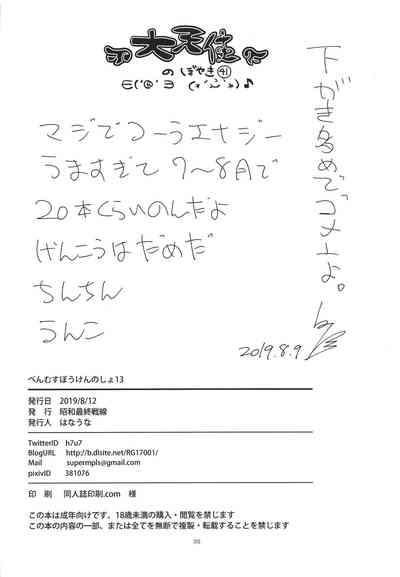 大天使
のぼやき㊶
マジでつーうエナジー
うますぎて 7〜8月で
20本くらいのんだよ
げんこうはだめだ
ちんちん
うんこ
下がき多めでゴメーンよ。
2019.8.9
べんむすぼうけんのしょ13
発行日 2019/8/12
発 行 昭和最終戦線
発行人 はなうな
TwitterID h7u7
BlogURL http://b.dlsite.net/RG17001/
Mail supermpls@gmail.com
pixivID 381076
印 刷 同人誌印刷.com 様
この本は成年向けです、18歳未満の購入・閲覧を禁じます
この本の内容の一部、または全てを無断で複製・転載することを禁じます